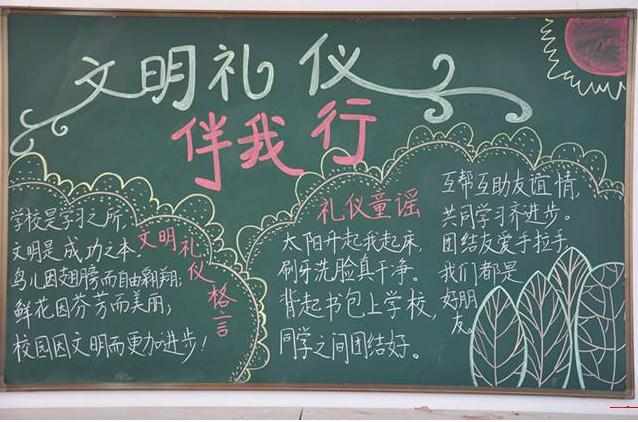 文明礼仪
伴我行
文明礼仪格言
学校是学习之所,
文明是成功之本.
鸟儿因翅膀而自由翱翔;
鲜花因芬芳而美丽;
校园因文明而更加进步!
礼仪童谣
太阳升起我起床,
刷牙洗脸真干净。
背起书包上学校,
同学之间团结好。
互帮互助友谊情,
共同学习齐进步。
团结友爱手拉手,
我们都是
好朋
友。